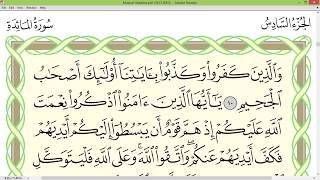 الجزء السادس
سورة المائدة
والذين كفروا وكذبوا بآياتنا أولئك أصحاب
الجحيم ١٠ يا أيها الذين ءامنوا اذكروا نعمت
الله عليكم إذ هم قوم أن يبسطوا إليكم أيديهم
فكف أيديهم عنكم واتقوا الله وعلى الله فليتوكل